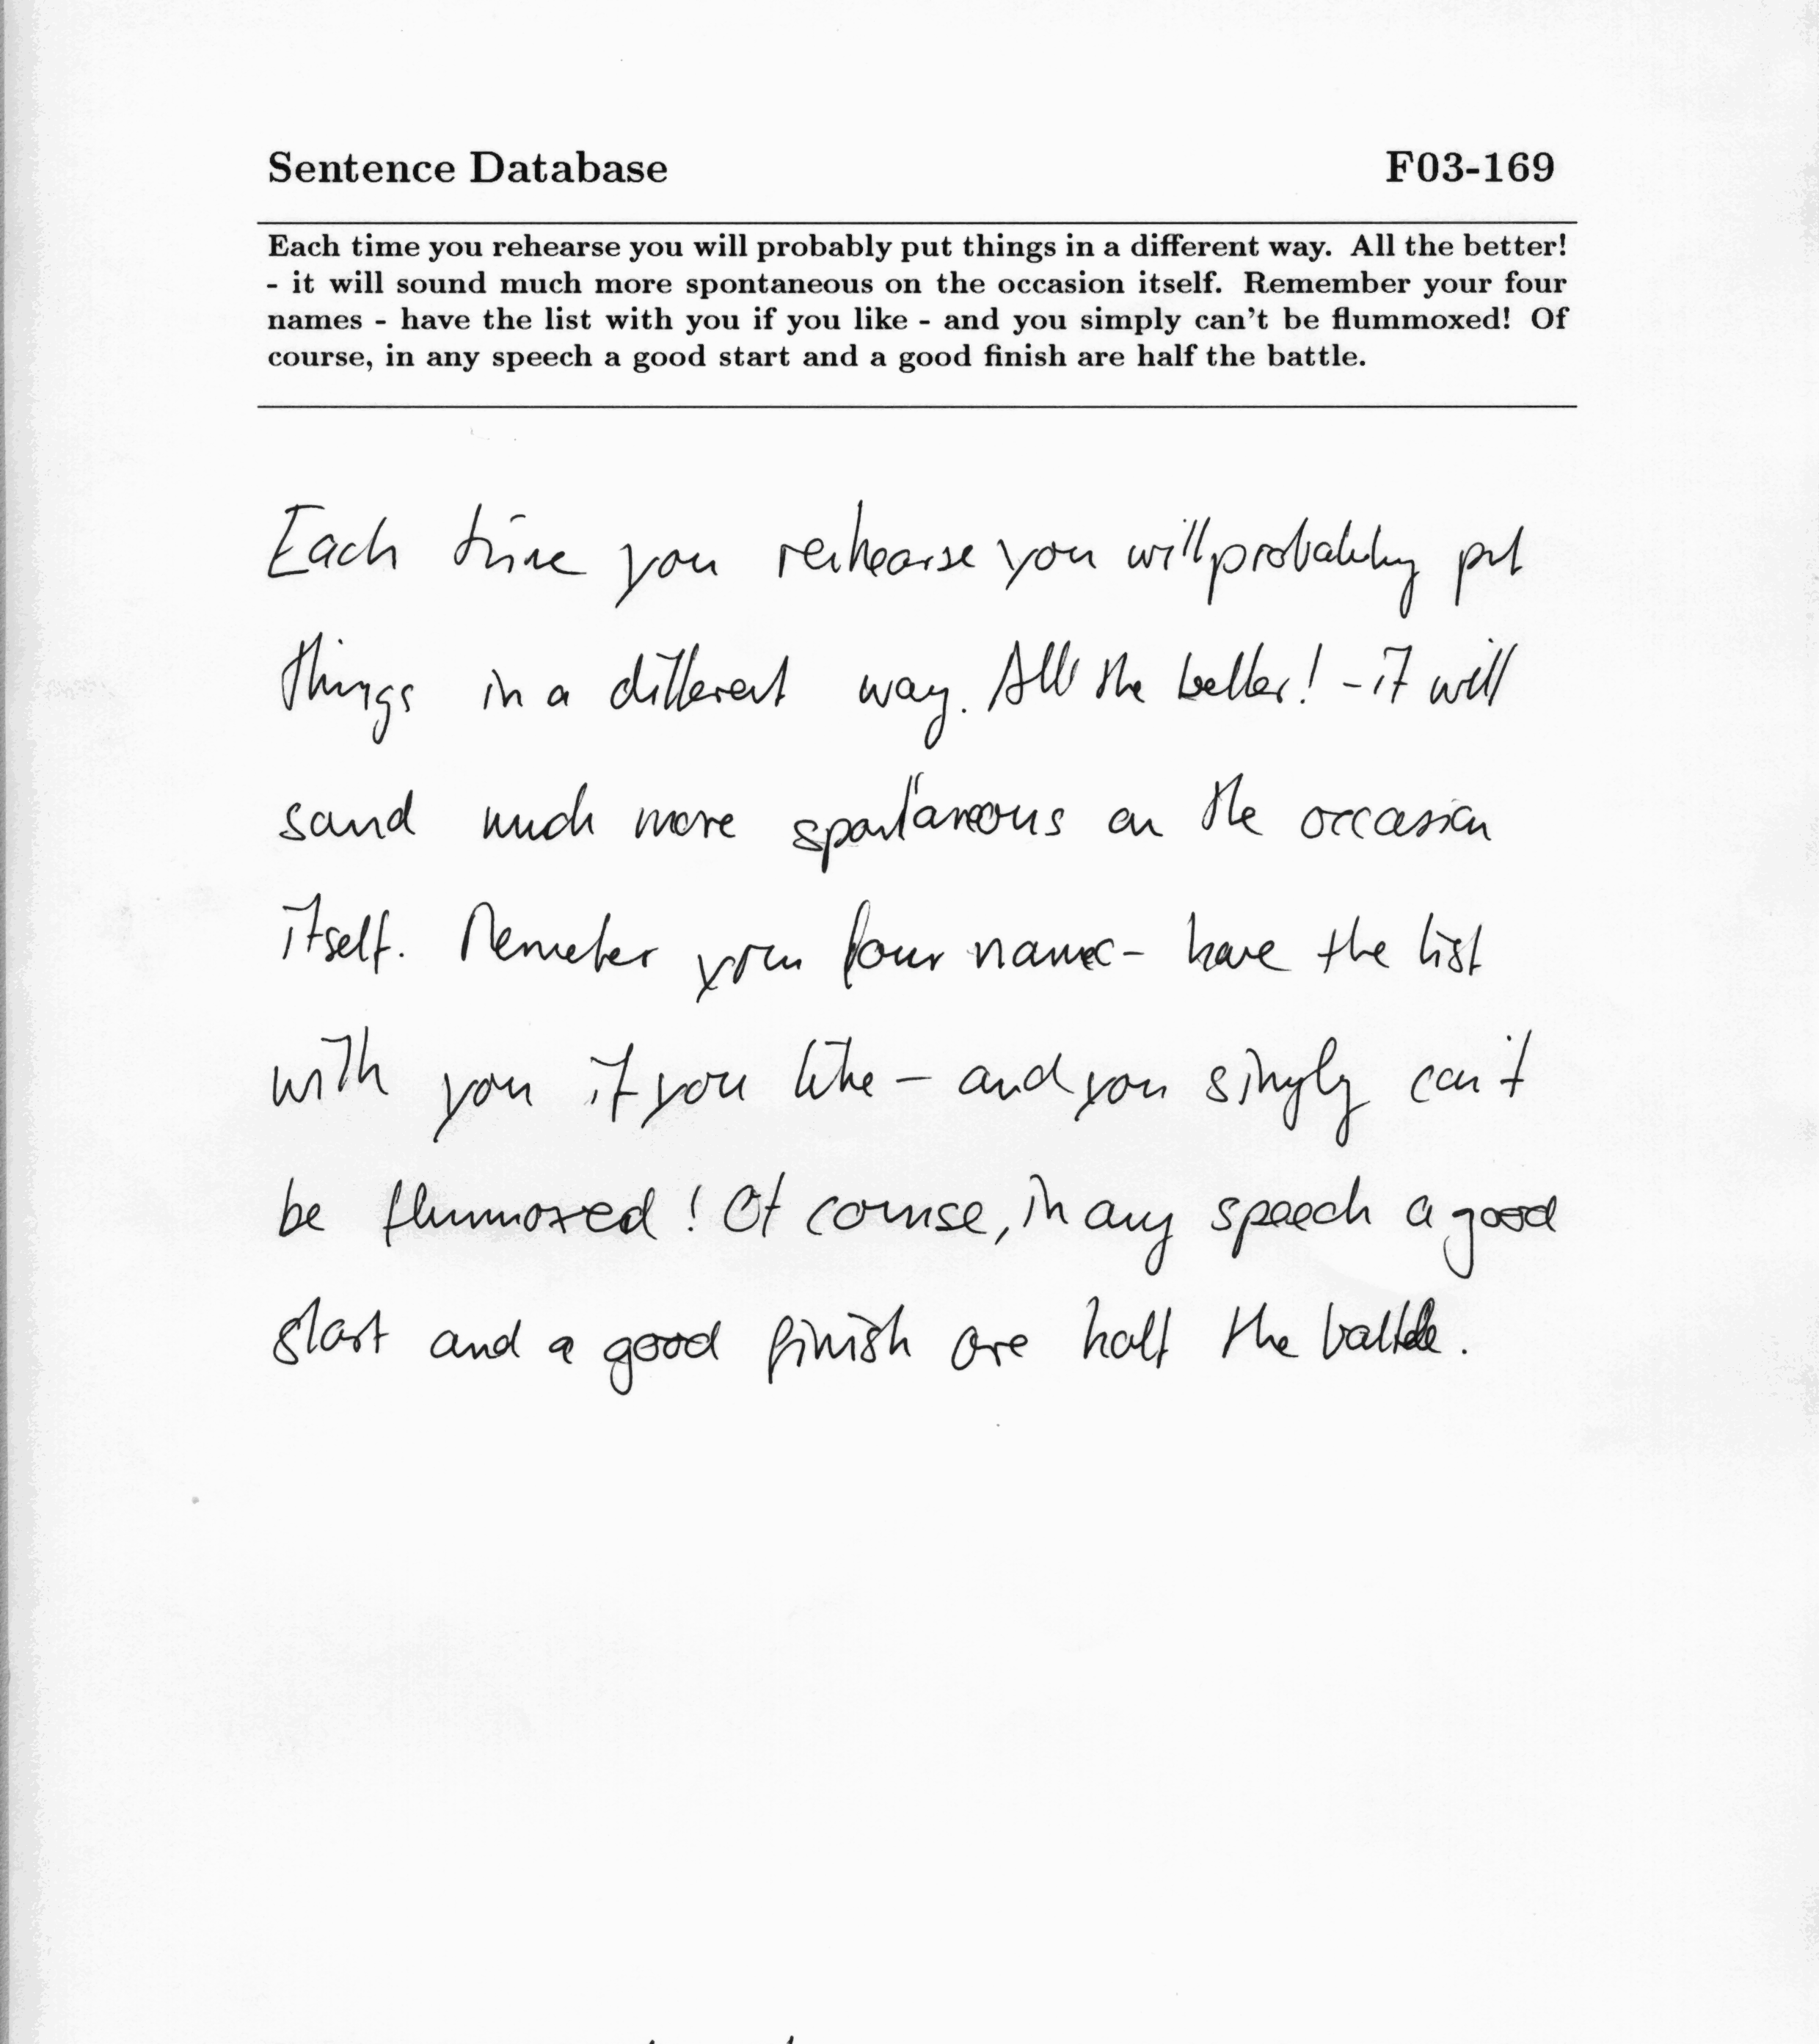 Sentence Database F03-169
Each time you rehearse you will probably put things in a different way. All the better!
- it will sound much more spontaneous on the occasion itself. Remember your four
names - have the list with you if you like - and you simply can't be flummoxed! Of
course, in any speech a good start and a good finish are half the battle.
Each time you rehearse you will probably put
things in a different way. All the better! - it will
sound much more spontaneous on the occasion
itself. Remeber your four names - have the list
with you if you like - and you simply can't
be flummoxed! Of course, in any speech a good
start and a good finish are half the battle.